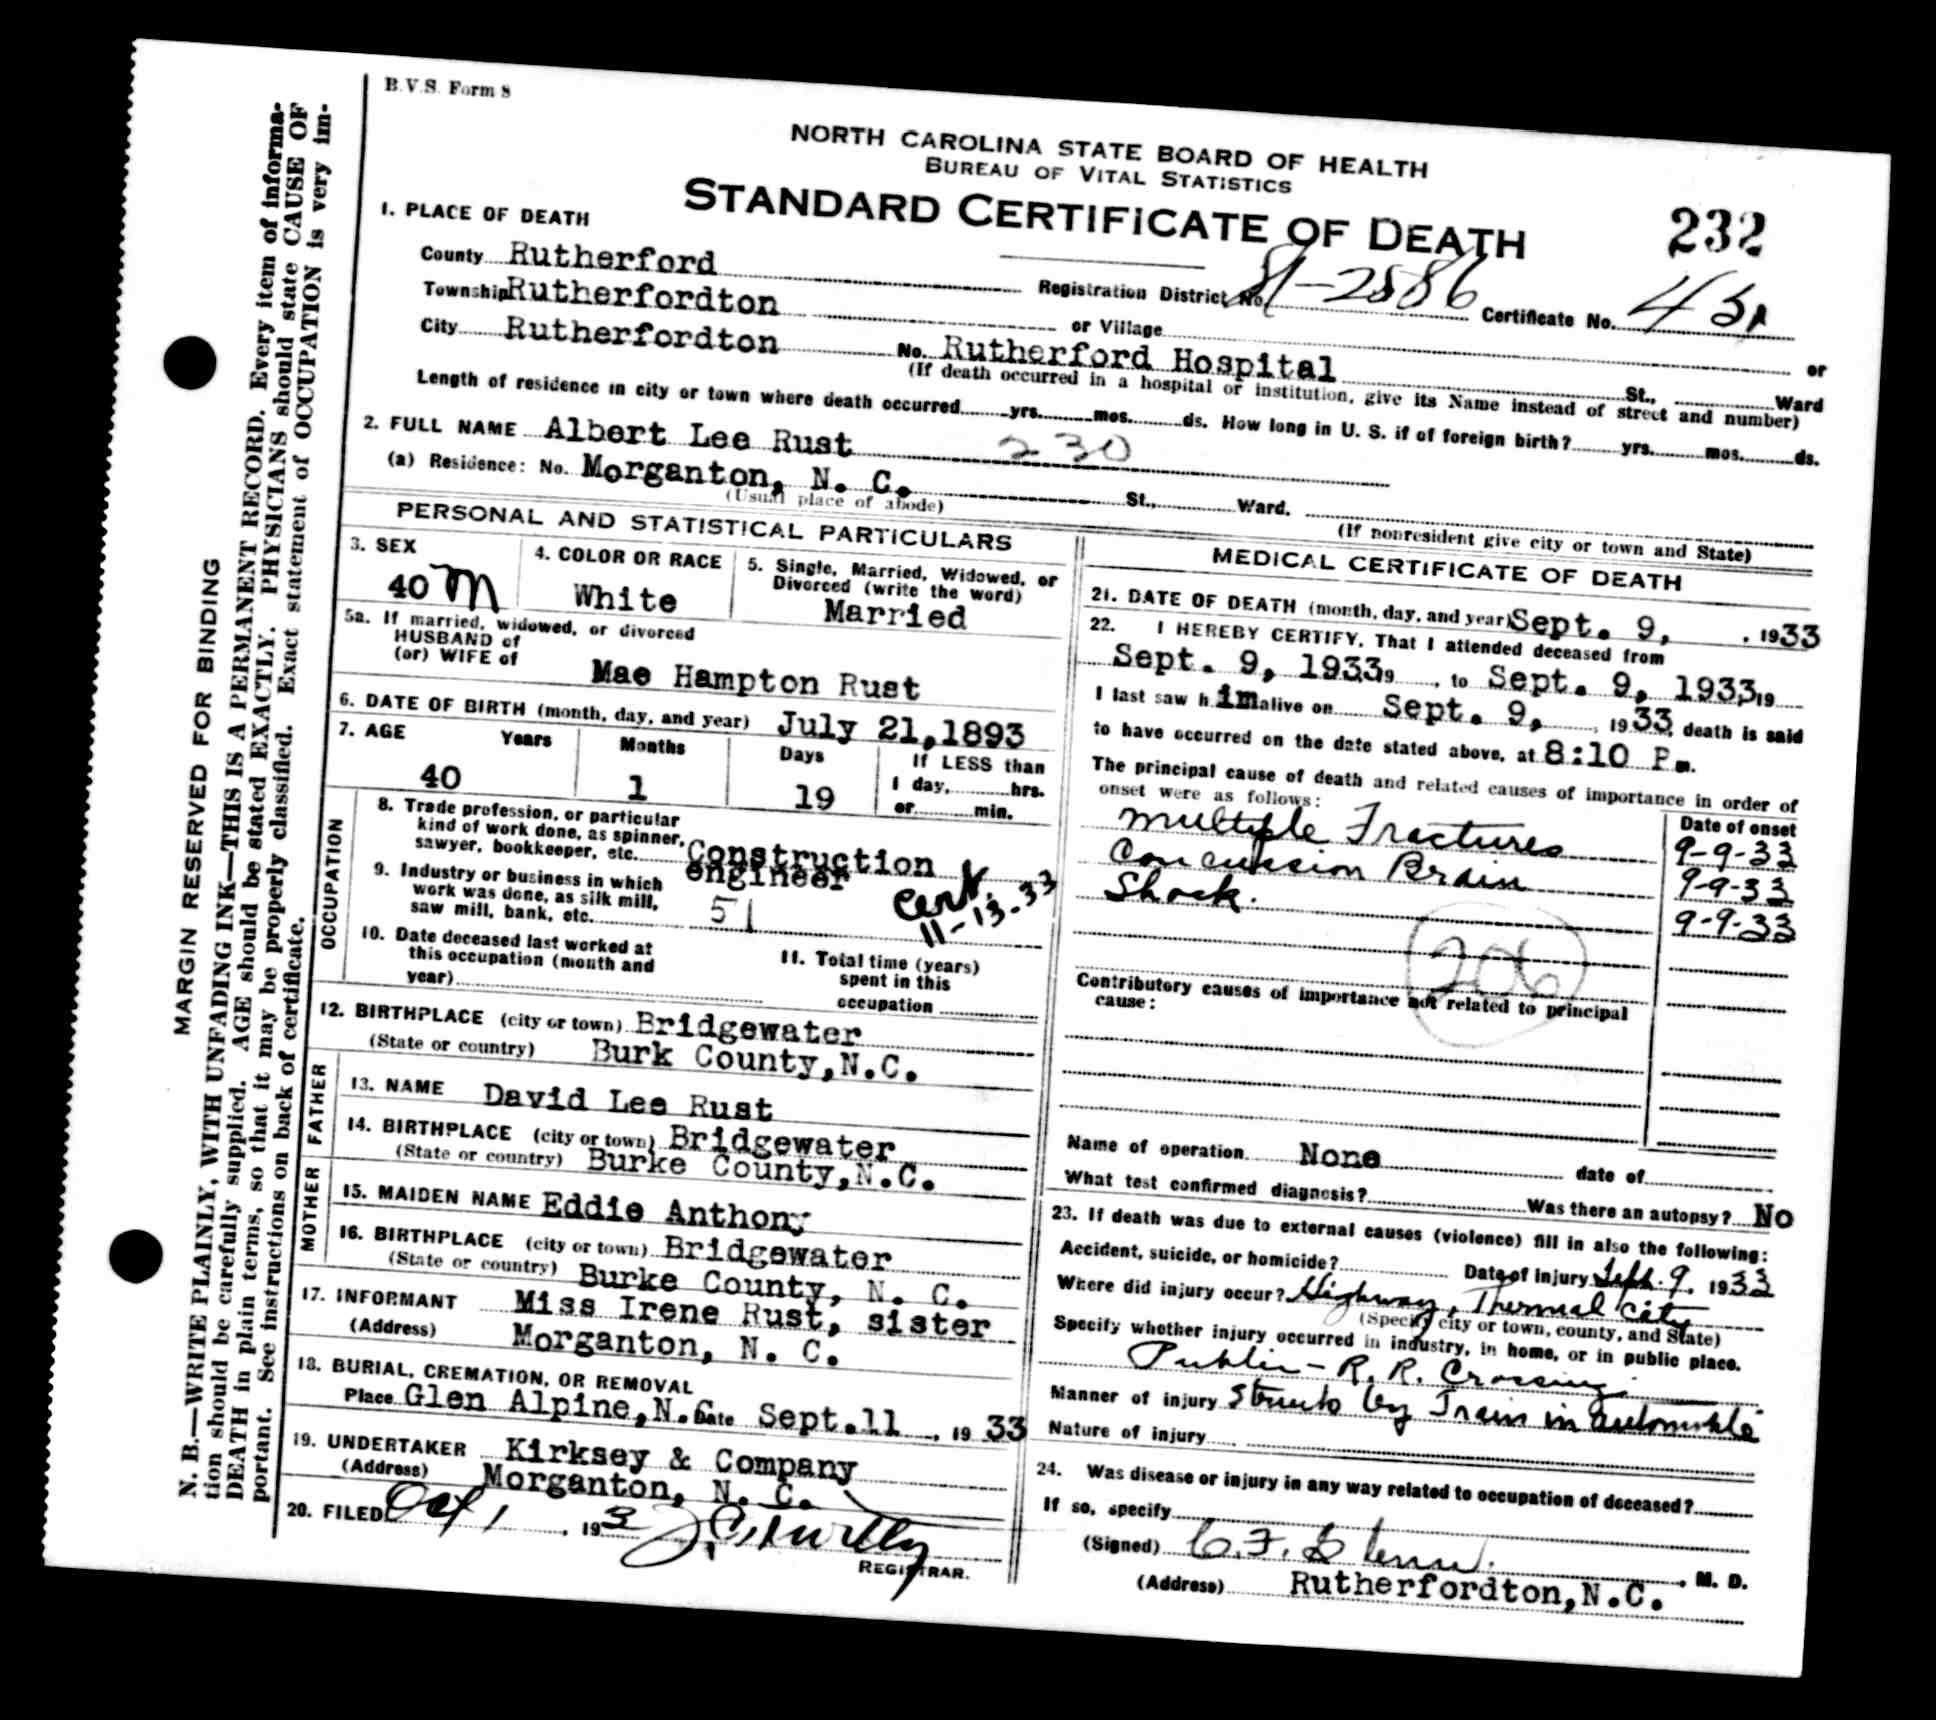 B.V.S. Form 8
NORTH CAROLINA STATE BOARD OF HEALTH
BUREAU OF VITAL STATISTICS
STANDARD CERTIFICATE OF DEATH
232
1. PLACE OF DEATH
County Rutherford Registration District No. 81-2586 Certificate No.
Township Rutherfordton or Village or
City Rutherfordton No. Rutherford Hospital St., Ward
(If death occurred in a hospital or institution, give its Name instead of street and number)
Length of residence in city or town where death occurred yrs. mos. ds. How long in U. S. if of foreign birth? yrs. mos. ds.
2. FULL NAME Albert Lee Rust 230
(a) Residence: No. Morganton, N. C. St., Ward.
(Usual place of abode) (If nonresident give city or town and State)
PERSONAL AND STATISTICAL PARTICULARS
3. SEX 4. COLOR OR RACE 5. Single, Married, Widowed, or
Divorced (write the word)
40 M White Married
5a. If married, widowed, or divorced
HUSBAND of
(or) WIFE of Mae Hampton Rust
6. DATE OF BIRTH (month, day, and year) July 21,1893
7. AGE Years Months Days If LESS than
1 day, hrs.
40 1 19 or min.
OCCUPATION
8. Trade profession, or particular
kind of work done, as spinner,
sawyer, bookkeeper, etc. Construction
engineer
9. Industry or business in which
work was done, as silk mill,
saw mill, bank, etc. 51
Cert.
11-13-33
10. Date deceased last worked at
this occupation (month and
year)
11. Total time (years)
spent in this
occupation
12. BIRTHPLACE (city or town) Bridgewater
(State or country) Burk County,N.C.
FATHER
13. NAME David Lee Rust
14. BIRTHPLACE (city or town) Bridgewater
(State or country) Burke County,N.C.
MOTHER
15. MAIDEN NAME Eddie Anthony
16. BIRTHPLACE (city or town) Bridgewater
(State or country) Burke County, N. C.
17. INFORMANT Miss Irene Rust, sister
(Address) Morganton, N. C.
18. BURIAL, CREMATION, OR REMOVAL
Place Glen Alpine,N.C. Date Sept.11 , 19 33
19. UNDERTAKER Kirksey & Company
(Address) Morganton, N. C.
20. FILED Oct 1 , 193
REGISTRAR.
MEDICAL CERTIFICATE OF DEATH
21. DATE OF DEATH (month, day, and year) Sept. 9, , 1933
22. I HEREBY CERTIFY, That I attended deceased from
Sept. 9, 1933 19 , to Sept. 9, 1933, 19
I last saw him alive on Sept. 9, , 1933, death is said
to have occurred on the date stated above, at 8:10 P m.
The principal cause of death and related causes of importance in order of
onset were as follows:
Date of onset
Multiple Fractures 9-9-33
Concussion Brain 9-9-33
Shock. 9-9-33
206
Contributory causes of importance not related to principal
cause:
Name of operation None date of
What test confirmed diagnosis? Was there an autopsy? No
23. If death was due to external causes (violence) fill in also the following:
Accident, suicide, or homicide? Date of injury Sept. 9, 1933
Where did injury occur? Highway, Thermal City
(Specify city or town, county, and State)
Specify whether injury occurred in industry, in home, or in public place.
Public - R. R. Crossing
Manner of injury Struck by Train in automobile
Nature of injury
24. Was disease or injury in any way related to occupation of deceased?
If so, specify
(Signed) C. F. , M. D.
(Address) Rutherfordton,N.C.
MARGIN RESERVED FOR BINDING
N. B.—WRITE PLAINLY, WITH UNFADING INK—THIS IS A PERMANENT RECORD. Every item of informa-
tion should be carefully supplied. AGE should be stated EXACTLY. PHYSICIANS should state CAUSE OF
DEATH in plain terms, so that it may be properly classified. Exact statement of OCCUPATION is very im-
portant. See instructions on back of certificate.